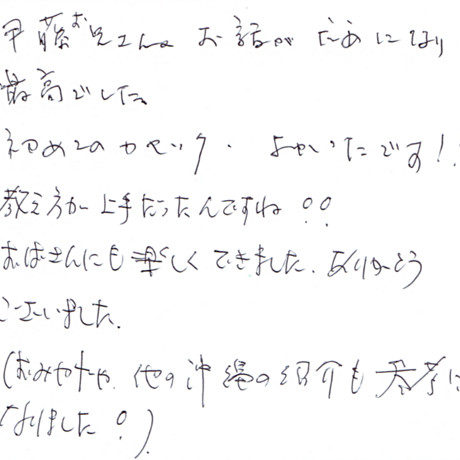 甲藤お兄さんの お話が ためになり
最高でした。
初めてのカヤック. よかったです!!
教え方が上手だったんですね!!
おばさんにも楽しくできました. ありがとう
ございました.
(おみやげや 他の沖縄の紹介も参考に
なりました!)